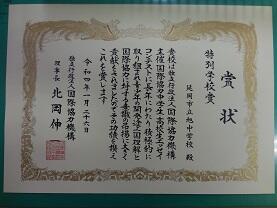 賞状
特別学校賞
延岡市立旭中学校 殿
貴校は独立行政法人国際協力機構
主催国際協力中学生・高校生エッセイ
コンテストに長年にわたり積極的に
取り組まれ青少年の開発途上国理解と
国際協力に対する意識の向上に大きく
貢献されましたのでその功績を称え
これを賞します
令和四年一月二十六日
独立行政法人国際協力機構
理事長 北岡伸一